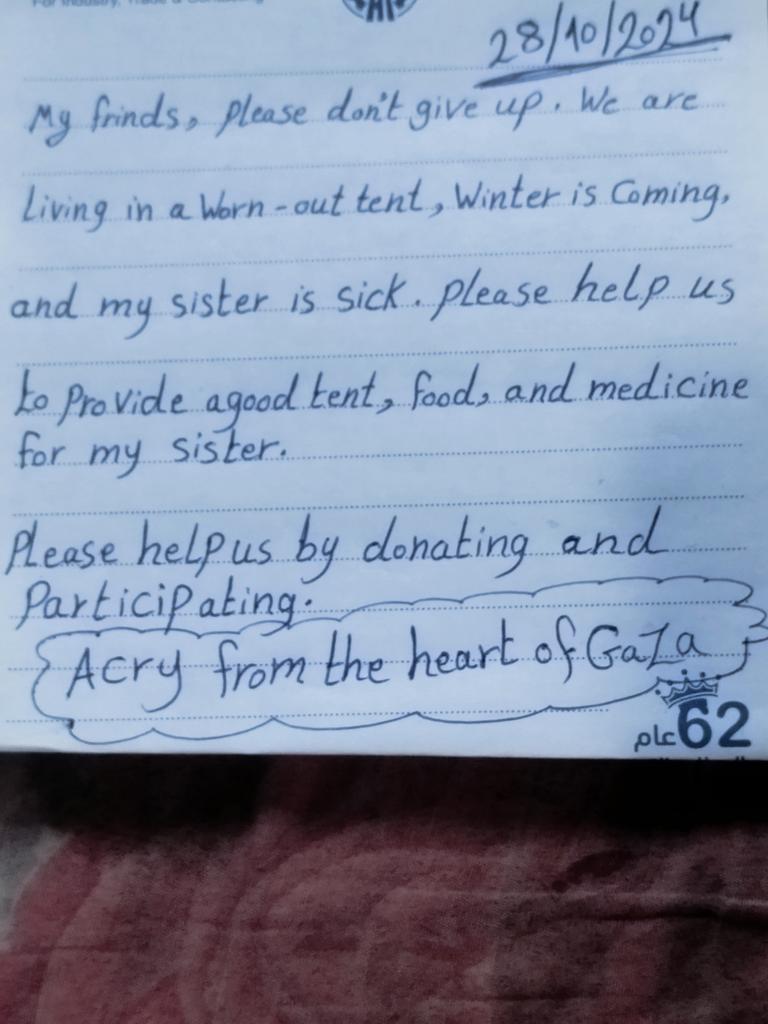 28/10/2024
My frinds, please don't give up. We are
Living in a Worn-out tent, Winter is Coming,
and my sister is sick. please help us
to Provide agood tent, food, and medicine
for my sister.
Please help us by donating and
Participating.
Acry from the heart of GaZa
62 عام